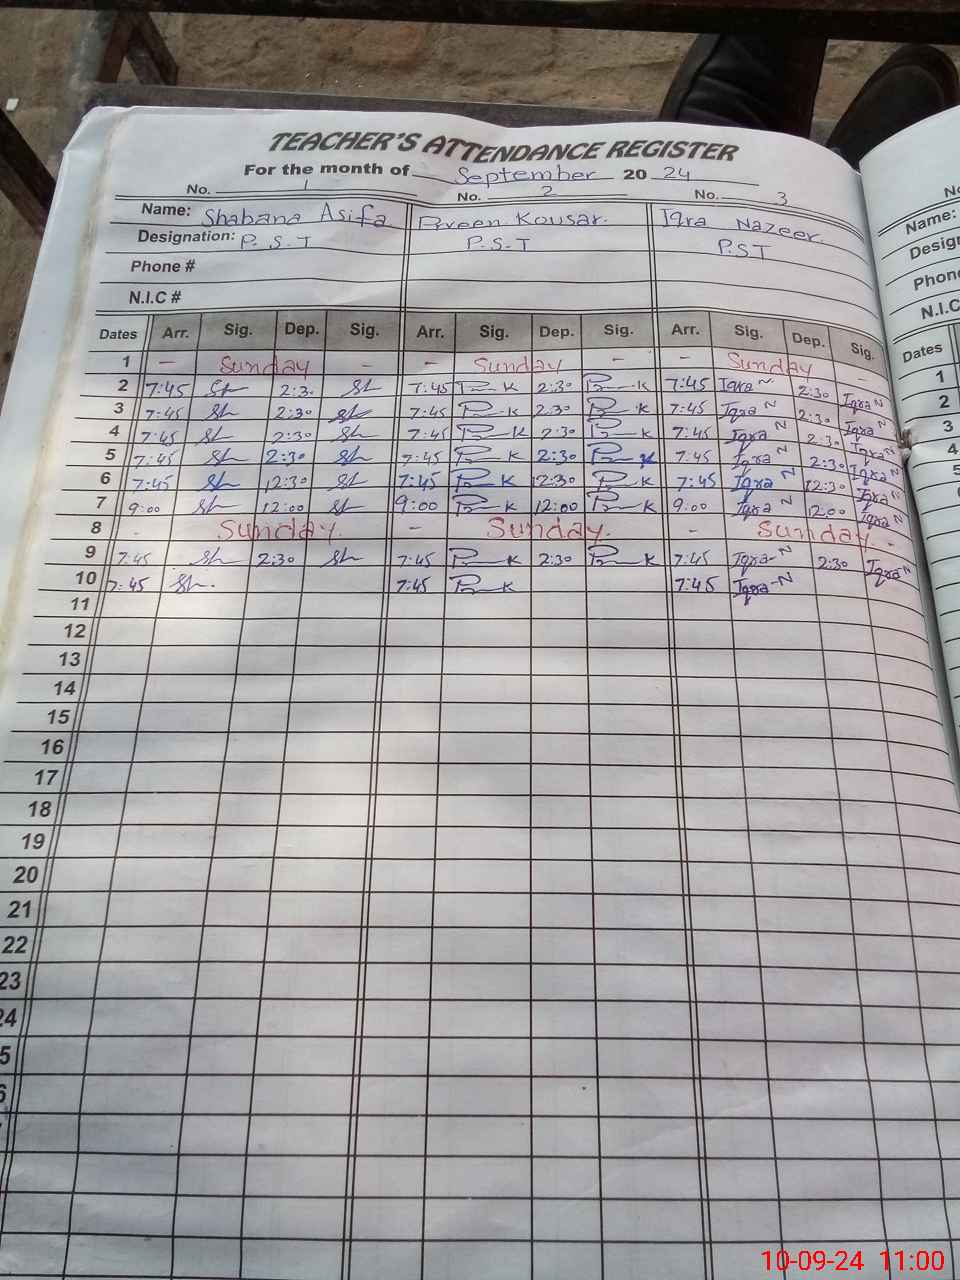 TEACHER'S ATTENDANCE REGISTER
For the month of September 20 24
No. 1 No. 2 No. 3
Name: Shabana Asifa Prveen Kousar. Iqra Nazeer.
Designation: P.S.T P.S.T P.ST
Phone #
N.I.C #
Dates Arr. Sig. Dep. Sig. Arr. Sig. Dep. Sig. Arr. Sig. Dep. Sig.
1 - Sunday - - Sunday - - Sunday -
2 7:45 Sh 2:3. Sh 7:45 K 2:30 K 7:45 Iqra N 2:30 Iqra N
3 7:45 Sh 2:30 Sh 7:45 K 2:30 K 7:45 Iqra N 2:30 Iqra N
4 7:45 Sh 2:30 Sh 7:45 K 2:30 K 7:45 Iqra N 2:30 Iqra N
5 7:45 Sh 2:30 Sh 7:45 K 2:30 K 7:45 Iqra N 2:30 Iqra N
6 7:45 Sh 12:30 Sh 7:45 K 12:30 K 7:45 Iqra N 12:30 Iqra N
7 9:00 Sh 12:00 Sh 9:00 K 12:00 K 9:00 Iqra N 12:00 Iqra N
8 - Sunday. - Sunday. - Sunday. -
9 7:45 Sh 2:30 Sh 7:45 K 2:30 K 7:45 Iqra-N 2:30 Iqra N
10 7:45 Sh. 7:45 K 7:45 Iqra-N
11
12
13
14
15
16
17
18
19
20
21
22
23
24
5
6
No
Name:
Design
Phone
N.I.C
Dates
1
2
3
4
5
10-09-24 11:00